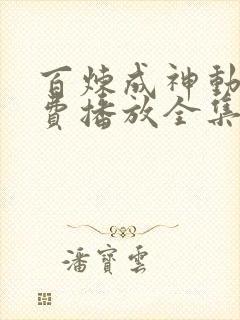 百炼成神动
费播放全集
潘寶雲